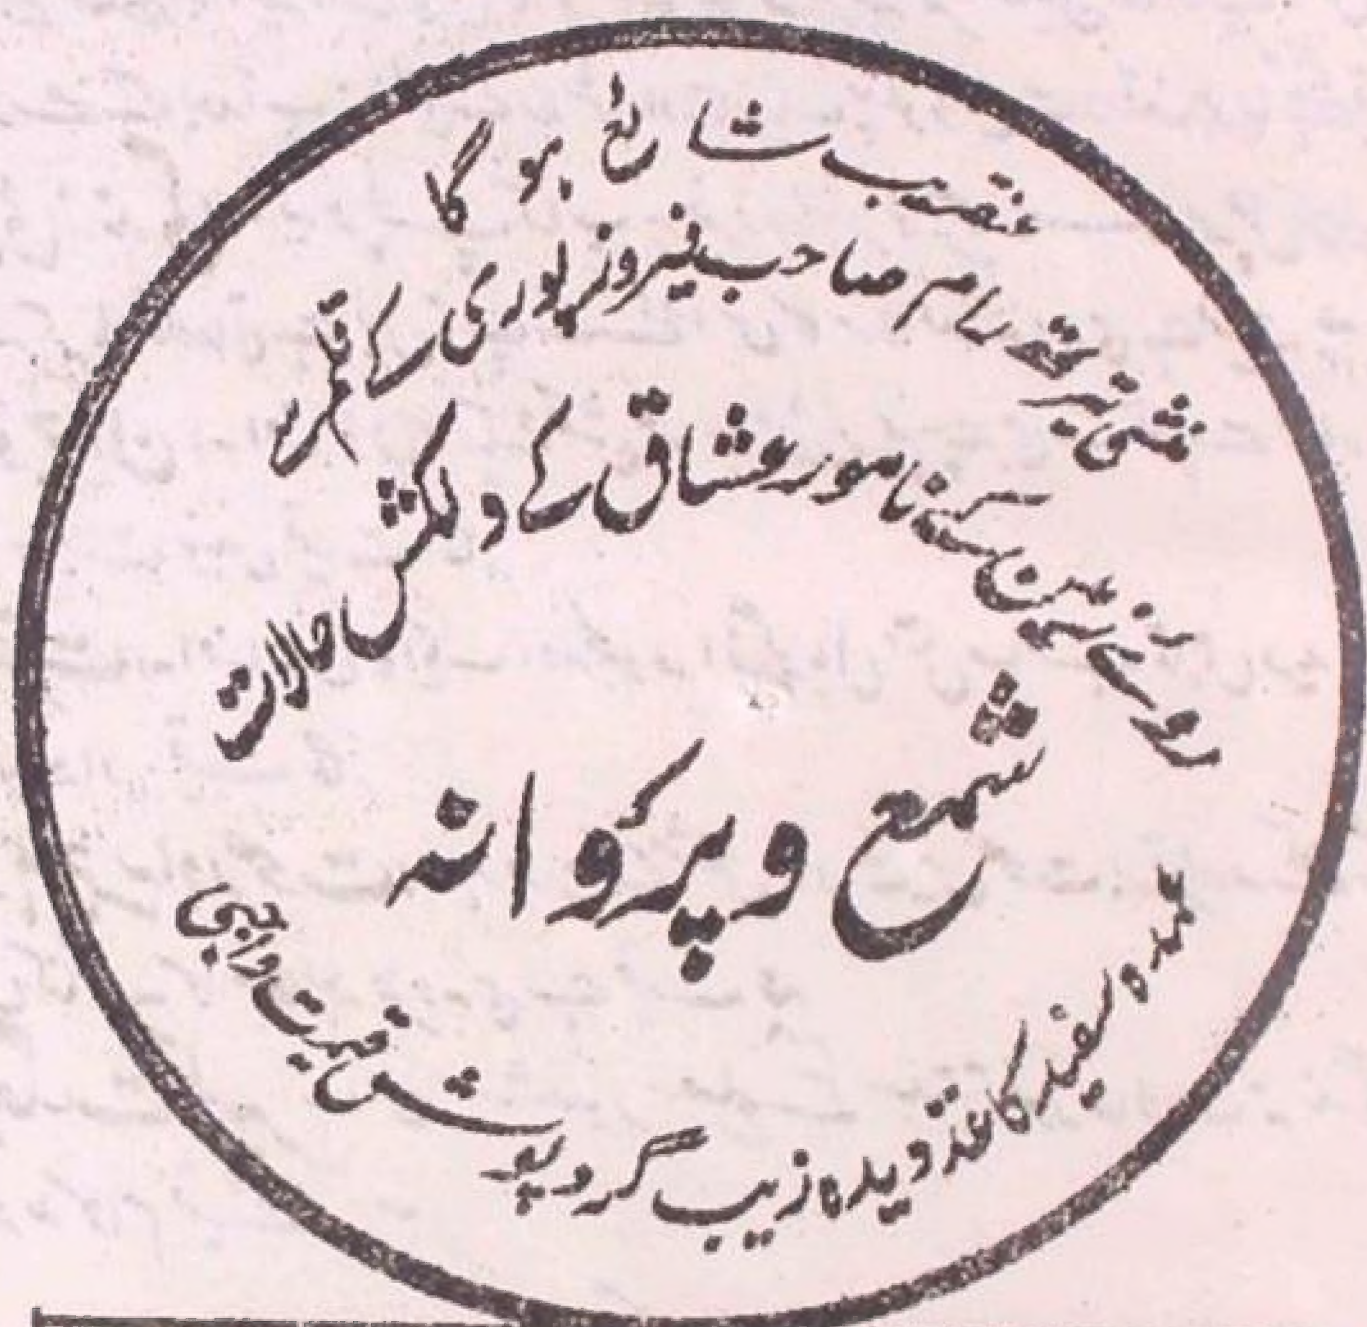 عنقریب شائع ہوگا
منشی تیرتھ رام صاحب فیروزپوری کے قلم سے
روئے زمین کے نامور عشاق کے دلکش حالات
شمع و پروانہ
عمدہ سفید کاغذ و دیدہ زیب گردپوش قیمت واجبی